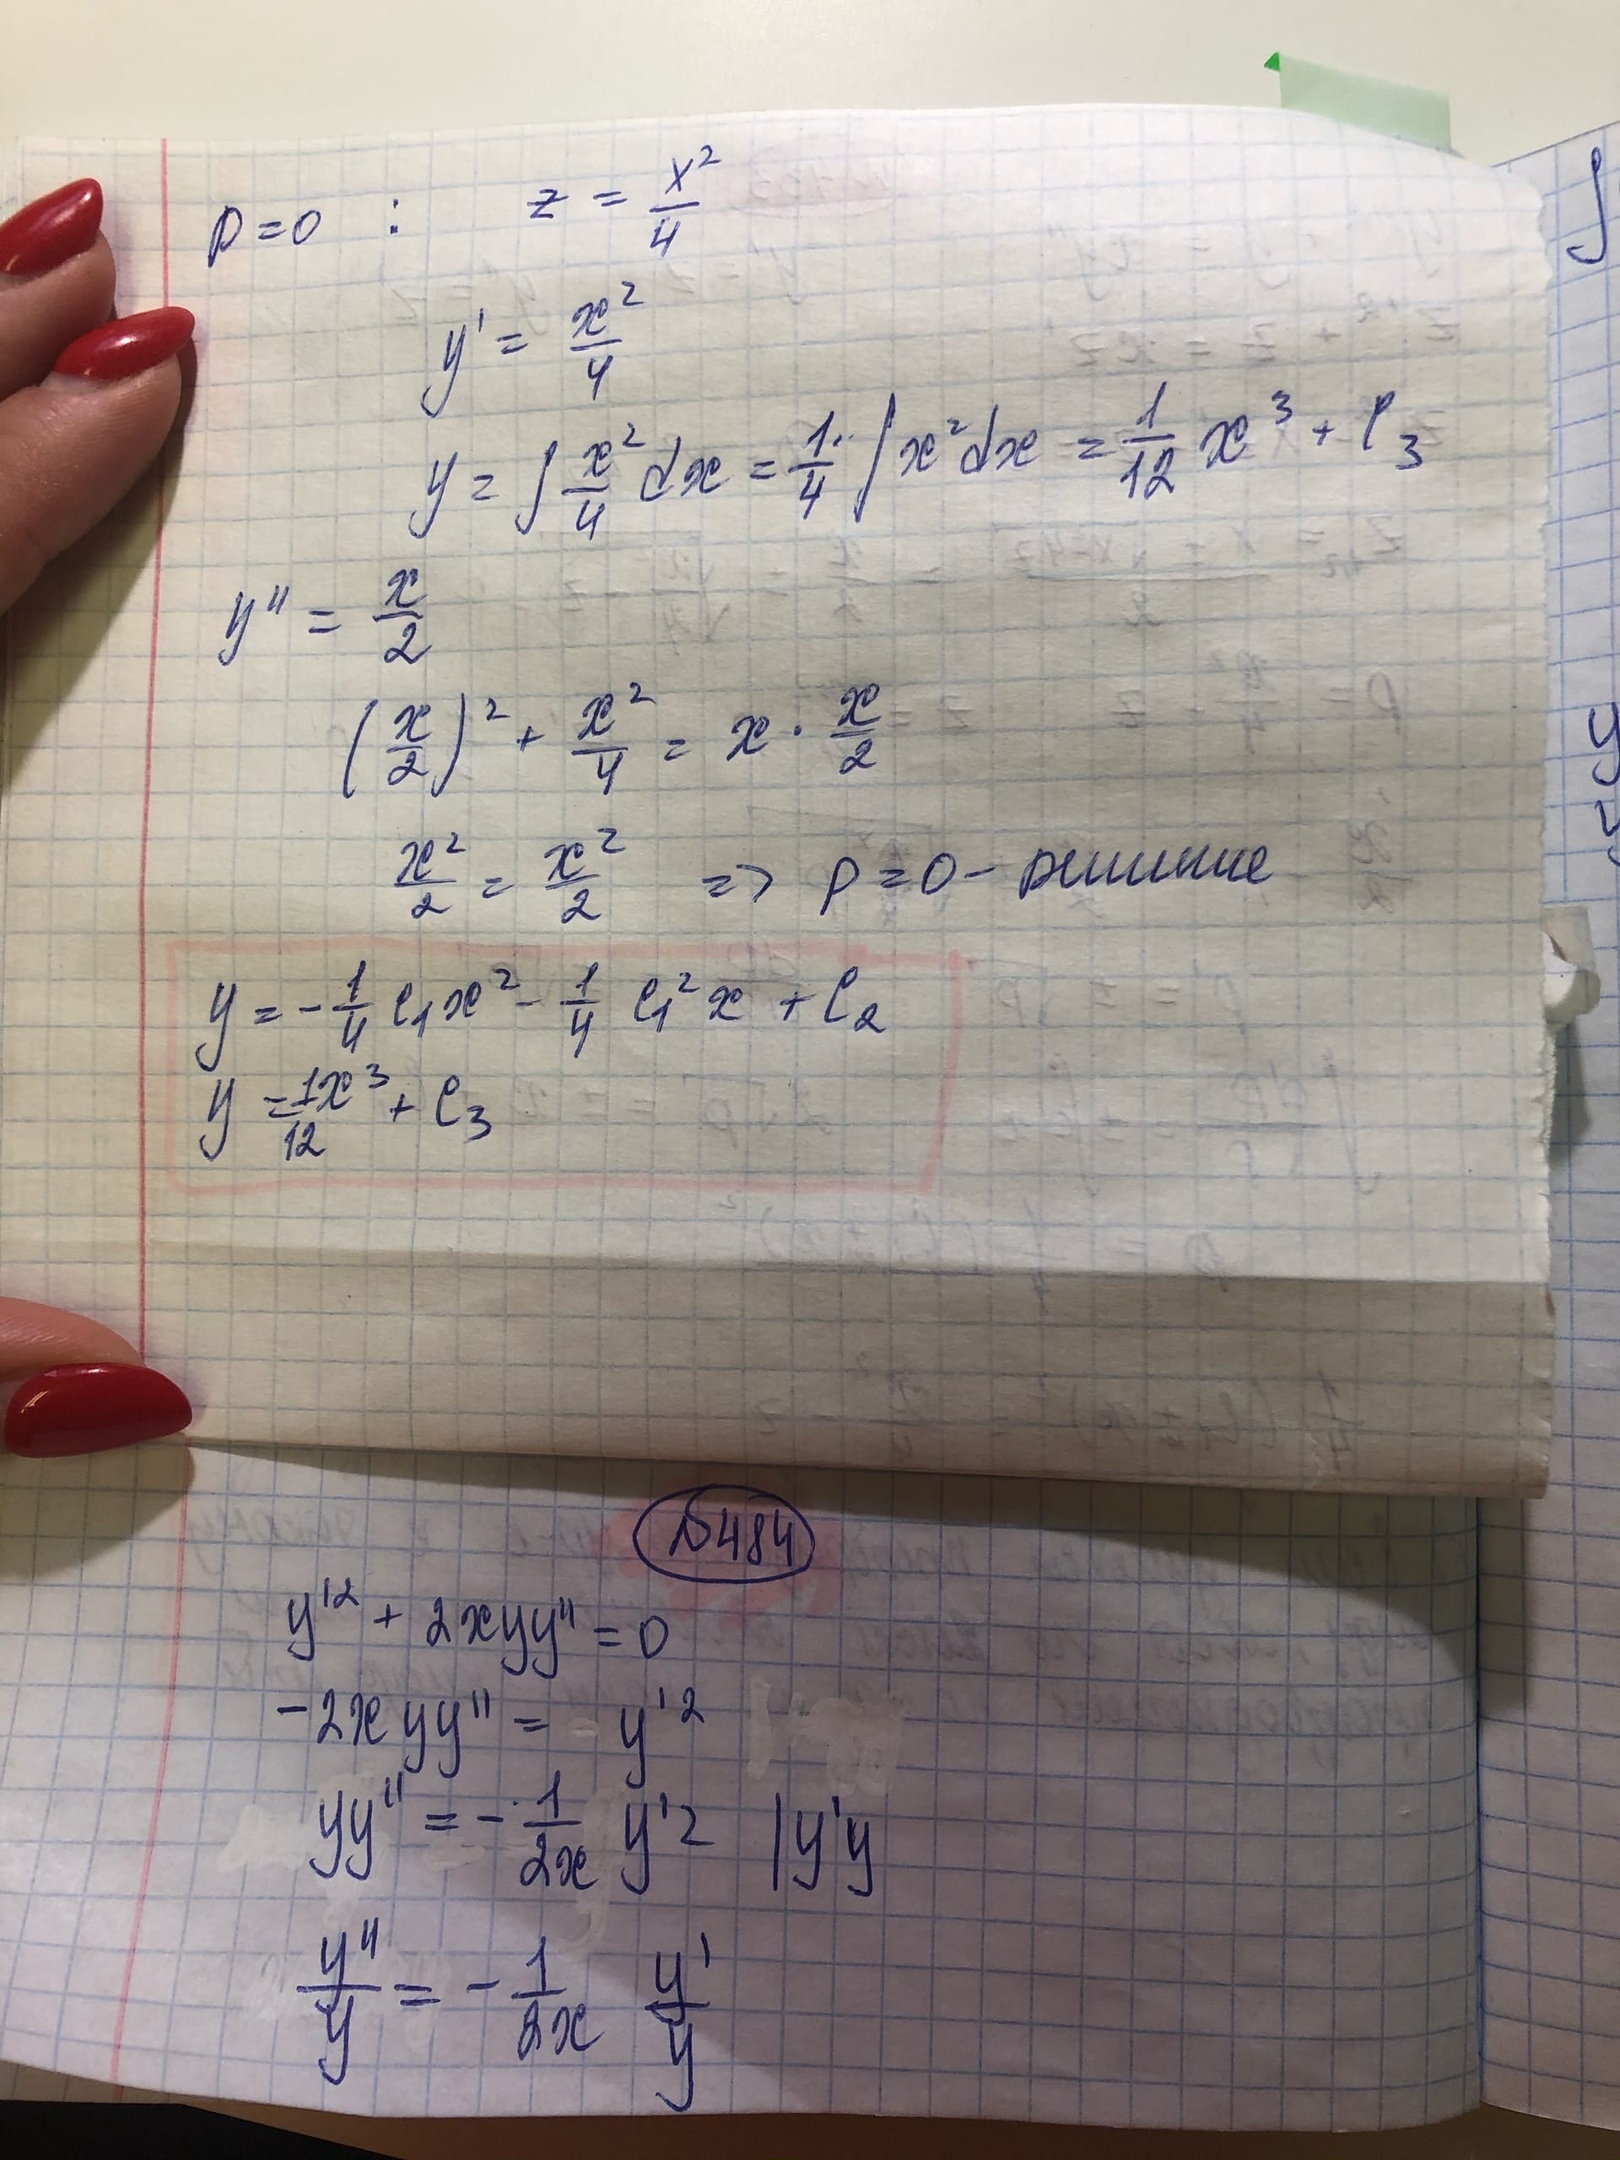 p=0 : z = x²/4
y' = x²/4
y = ∫ x²/4 dx = 1/4 · ∫ x² dx = 1/12 x³ + C₃
y'' = x/2
(x/2)² + x²/4 = x · x/2
x²/2 = x²/2 => p=0 – решение
y = -1/4 C₁x² - 1/4 C₁²x + C₂
y = 1x³/12 + C₃
№484
y'² + 2xyy'' = 0
-2xyy'' = y'²
yy'' = - 1/2x y'² | y'y
y''/y = - 1/2x y'/y